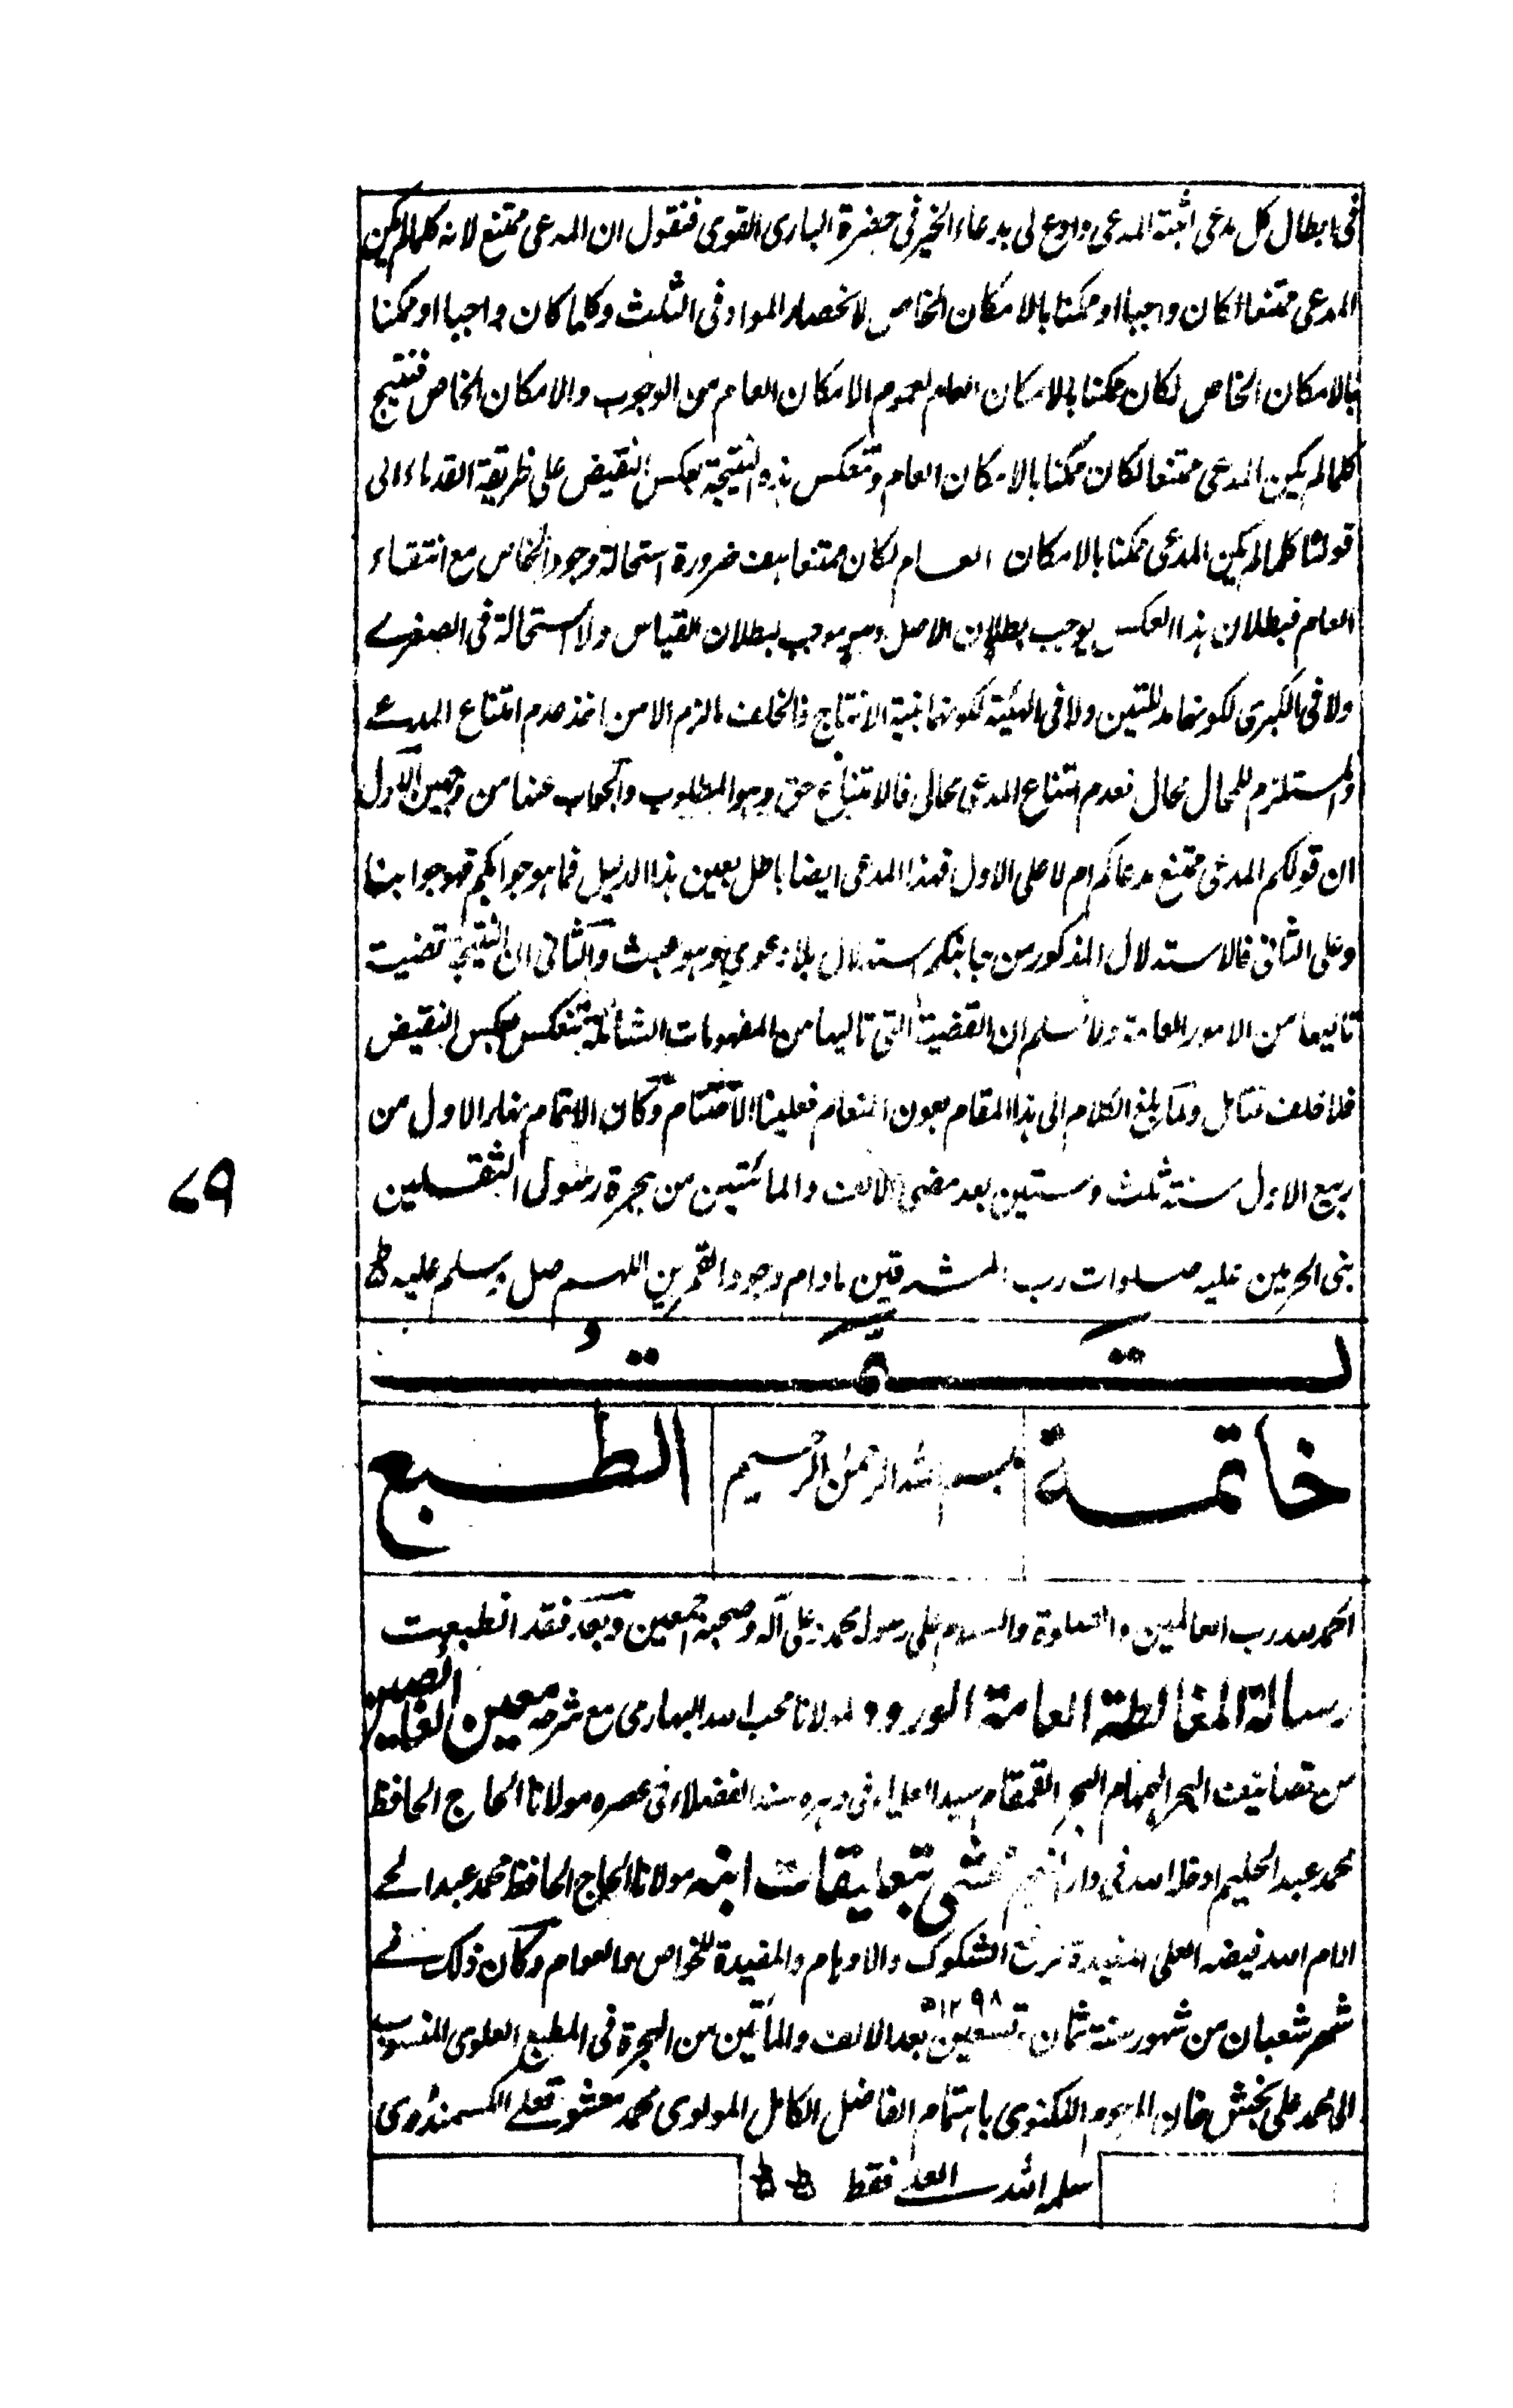 فى ابطال كل مدعى اثبته المدعى وادع لى بدعاء الخير فى حضرة البارى القوى فنقول ان المدعى ممتنع لانه كلما لم يكن
المدعى ممتنعا لكان واجبا او ممكنا بالامكان الخاص لانحصار المواد فى الثلث وكلما كان واجبا او ممكنا
بالامكان الخاص لكان ممكنا بالامكان العام لعموم الامكان العام من الوجوب والامكان الخاص فنتيج
كلما لم يكن المدعى ممتنعا لكان ممكنا بالامكان العام وتنعكس هذه النتيجة بعكس النقيض على طريقة القدماء الى
قولنا كلما لم يكن المدعى ممكنا بالامكان العام لكان ممتنعا هف ضرورة استحالة وجود الخاص مع انتفاء
العام فبطلان هذا العكس يوجب بطلان الاصل وهو موجب لبطلان القياس ولا استحالة فى الصغرے
ولا فى الكبرى لكونهما مدللتين ولا فى الهيئة لكونها بينة الانتاج فالخلف مالزم الا من اخذ عدم امتناع المدعے
والمستلزم للمحال محال فعدم امتناع المدعى محال فالامتناع حق وهو المطلوب والجواب عنها من وجهين الاول
ان قولكم المدعى ممتنع مدعاكم ام لا على الاول فهذا المدعى ايضا باطل بعين هذا الدليل فما هو جوابكم فهو جوابنا
وعلى الثانى فالاستدلال المذكور من جانبكم استدلال بلا دعوى وهو عبث والثانى ان النتيجة قضية
تاليها من الامور العامة ولا نسلم ان القضية التى تاليها من المفهومات الشاملة تنعكس بعكس النقيض
فلا خلف فتامل ولما بلغ الكلام الى هذا المقام بعون المنعام فعلينا الاختتام وكان الاتمام نهار الاول من
ربيع الاول سنة ثلث وستين بعد مضى الالف والمائتين من هجرة رسول الثقلين
نبى الحرمين عليه صلوات رب المشرقين مادام وجود القمرين اللهم صل وسلم عليه
تمت
خاتمة بسم الله الرحمن الرحيم الطبع
الحمد لله رب العالمين والصلوة والسلام على رسوله محمد وعلى آله وصحبه اجمعين وبعد فقد انطبعت
رسالة المغالطة العامة الورود لمولانا محب الله البهارى مع شرحه معين الغائصين
من تصانيف البحر الهمهام الحبر القمقام سيد العلماء فى دهره سند الفضلاء فى عصره مولانا الحاج الحافظ
محمد عبد الحليم ادخله الله فى دار النعيم محشى بتعليقات ابنه مولانا الحاج الحافظ محمد عبد الحے
ادام الله فيضه العلى المفيدة الشكوك والاوهام والمفيدة للخواص والعوام وكان ذلك فے
شهر شعبان من شهور سنة ثمان وتسعين ١٢٩٨ه بعد الالف والمأتين من الهجرة فى المطبع العلوى المنسوب
الى محمد على بخش خان المرحوم اللكنوى باهتمام الفاضل الكامل المولوى محمد معشوق على الكسمنڈوى
سلمه الله العلى فقط
٧٩